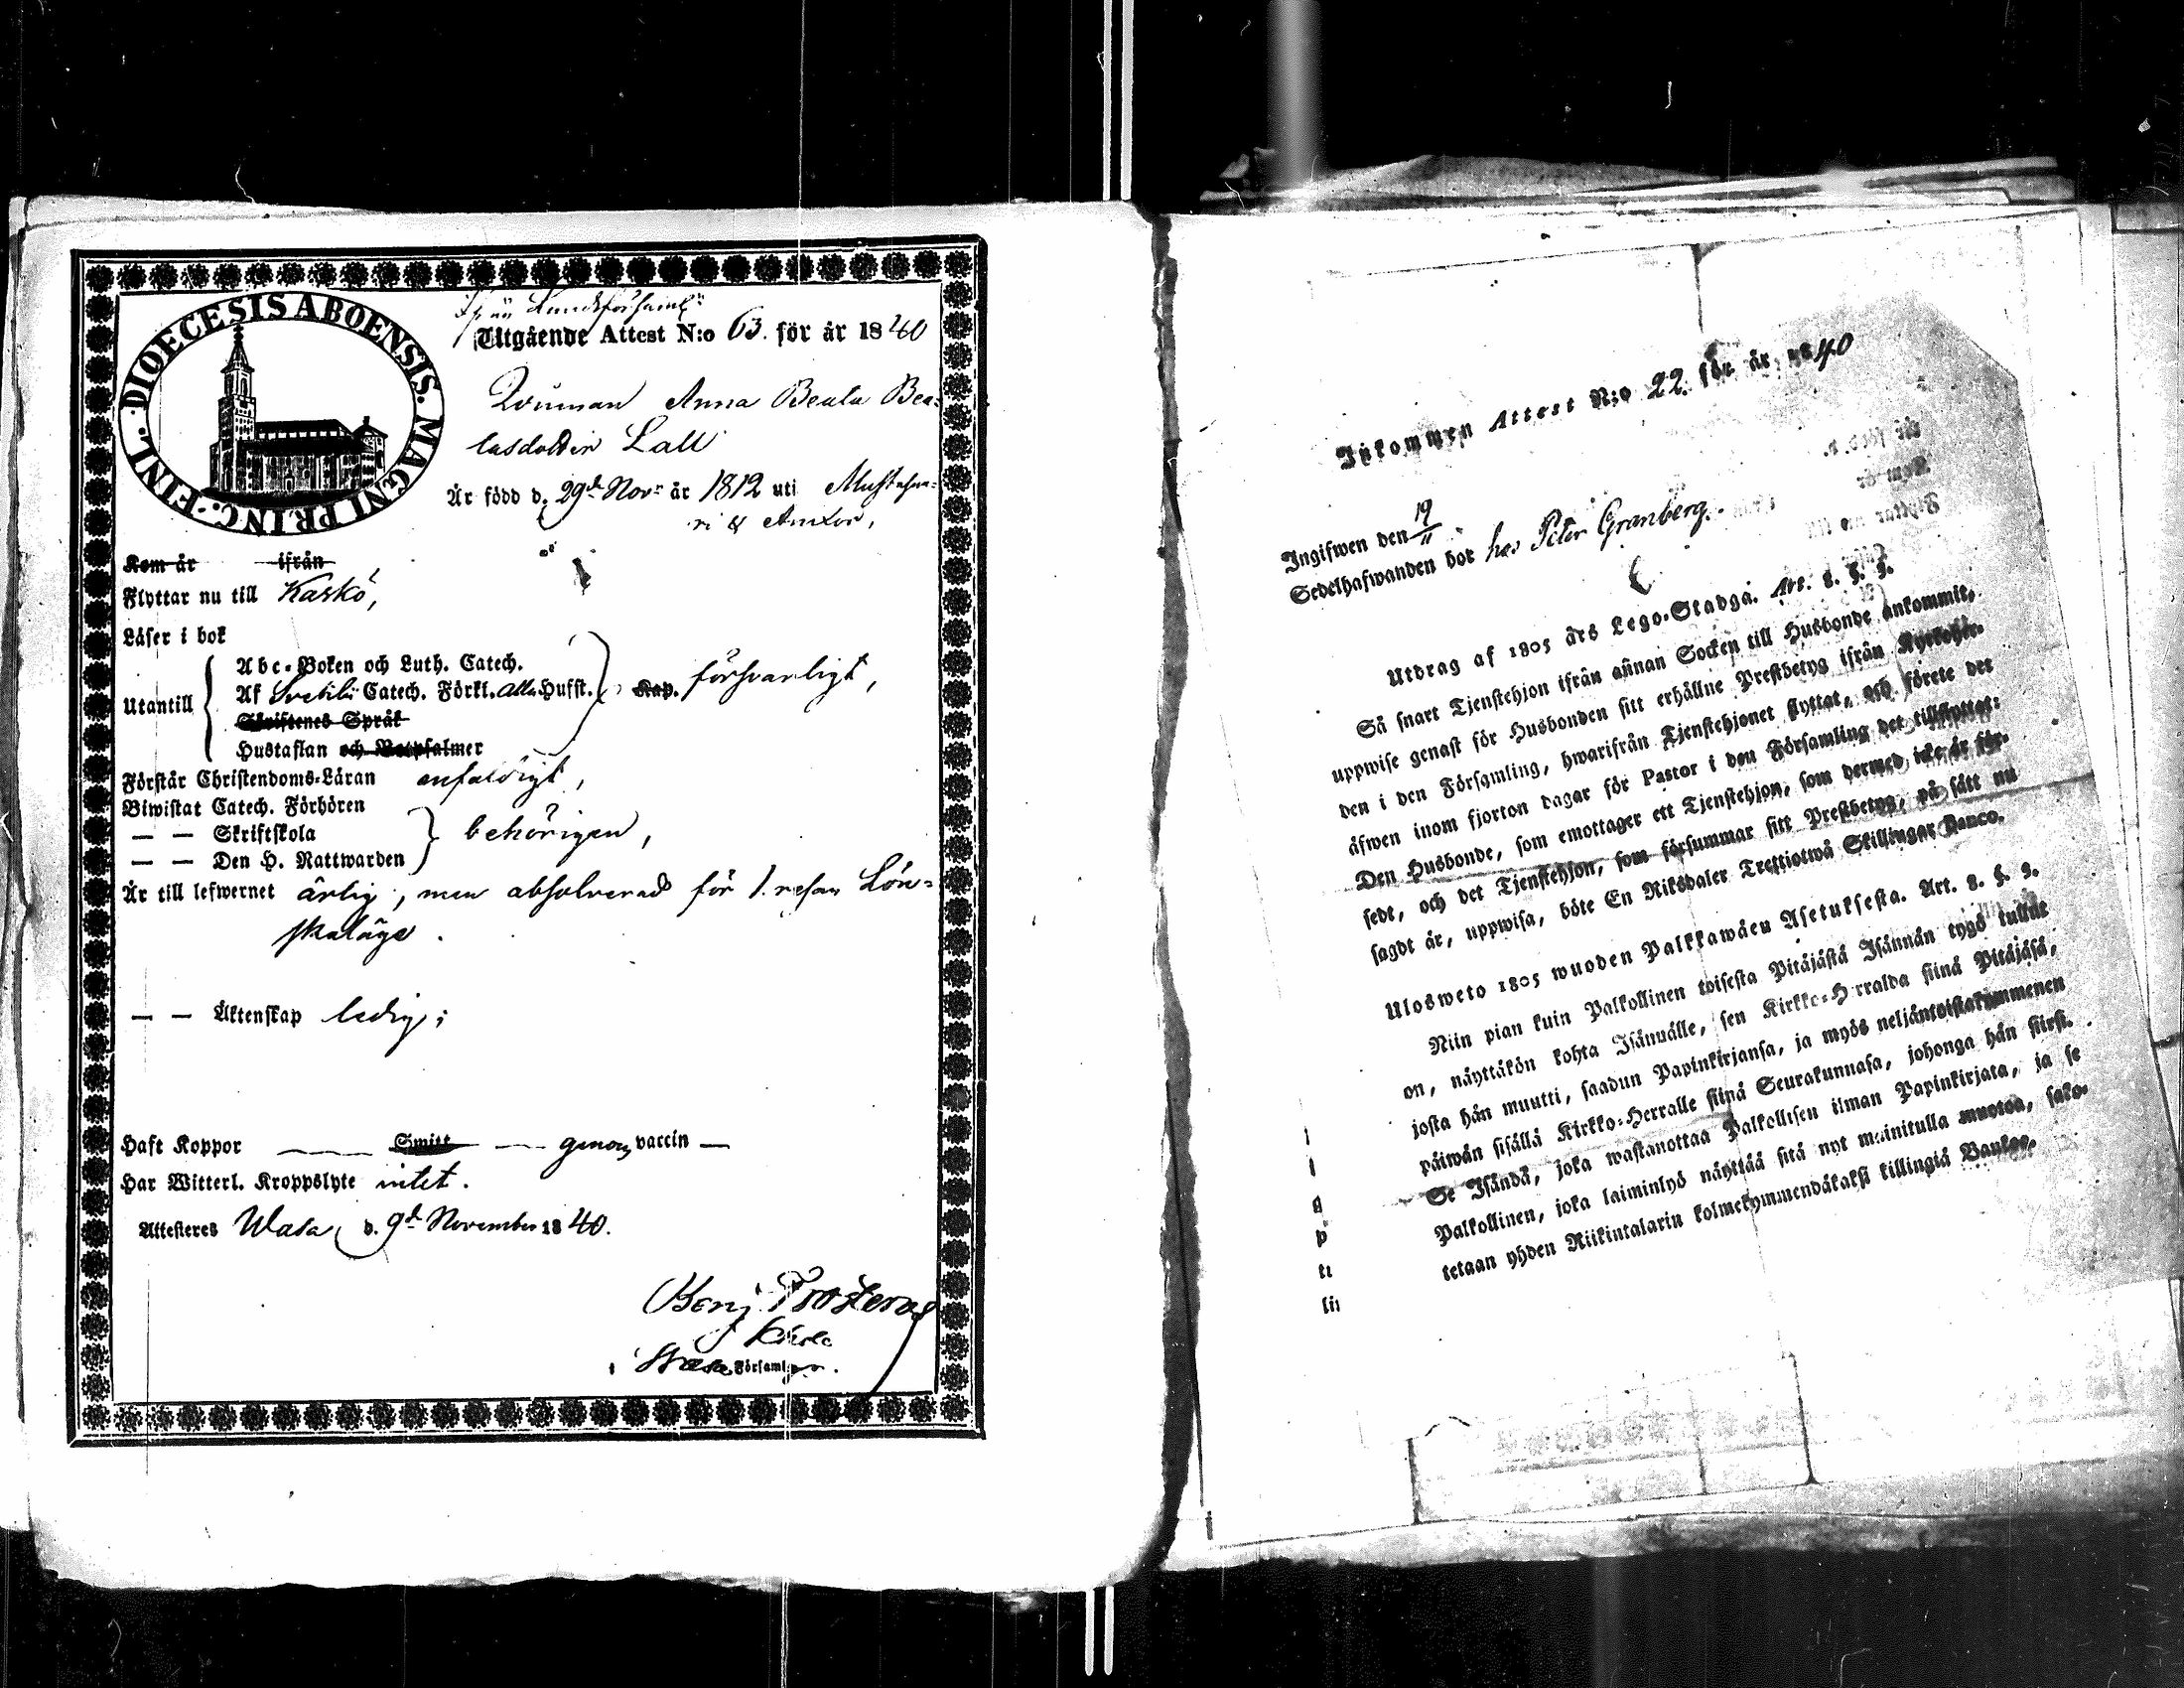 DIOECESIS ABOENSIS. MAGNI PRINC. FINL.
från Landsförsaml:
Utgående Attest N:o 63. för år 1840
Qvinnan Anna Beata Bea-
tasdotter Lall
Är född d. 29d Novr år 1812 uti Mustasaa-
ri
Kom år ifrån
Flyttar nu till Kaskö,
Läser i bok
Utantill
Abc-Boken och Luth. Catech.
Af Svebili Catech. Förkl. alla Hufst. Kap. försvarligt,
Skriftenes Språk
Hustaflan och Botpsalmer
Förstår Christendoms-Läran enfaldigt,
Biwistat Catech. Förhören
— — Skriftskola behörigen,
— — Den H. Nattwarden
Är till lefwernet ärlig, men absolverad för 1. resan Lön-
skaläge.
— — Äktenskap ledig;
Haft Koppor — Smitt — genom vaccin —
Har Witterl. Kroppslyte intet.
Attesteras Wasa d. 9d November 1840.
Benj. Frosterus
i Wasa Församl.
Inkommen Attest N:o 22. för år 1840
Ingifwen den 19/11
Sedelhafwanden bor hos Peter Granberg.
Utdrag af 1805 års Lego-Stadga. Art. 8. §. 9.
Så snart Tjenstehjon ifrån annan Socken till Husbonde ankommit,
uppwise genast för Husbonden sitt erhållne Prestbetyg ifrån Kyrkoher-
den i den Församling, hwarifrån Tjenstehjonet flyttat, och förete det
äfwen inom fjorton dagar för Pastor i den Församling det tillflyttat:
Den Husbonde, som emottager ett Tjenstehjon, som dermed icke är för-
sedt, och det Tjenstehjon, som försummar sitt Prestbetyg, på sätt nu
sagdt är, uppwisa, böte En Riksdaler Trettiotwå Skillingar Banco.
Ulosweto 1805 wuoden Palkkawäen Asetuksesta. Art. 8. §. 9.
Niin pian kuin Palkollinen toisesta Pitäjästä Isännän tygö tullut
on, näyttäkön kohta Isännälle, sen Kirkko-Herralda siinä Pitäjäsä,
josta hän muutti, saadun Papinkirjansa, ja myös neljäntoistakymmenen
päiwän sisällä Kirkko-Herralle siinä Seurakunnasa, johonga hän siirsi.
Se Isändä, joka wastanottaa Palkollisen ilman Papinkirjata, ja se
Palkollinen, joka laiminlyö näyttää sitä nyt mainitulla muotoa, sako-
tetaan yhden Riikintalarin kolmekymmendäkaksi killingiä Bankos.